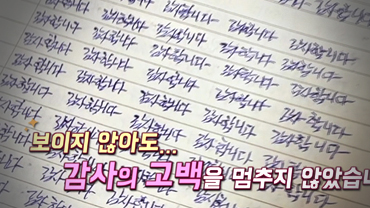 감사합니다 감사합니다 감사합니다 감사합니다
감사합니다 감사합니다 감사합니다 감사합니다 감사합니다
감사합니다 감사합니다 감사합니다 감사합니다 감사합니다
감사합니다 감사합니다 감사합니다 감사합니다 감사합니다
감사합니다 감사합니다 감사합니다 감사합니다 감사합니다
보이지 않아도...
감사의 고백을 멈추지 않았습니